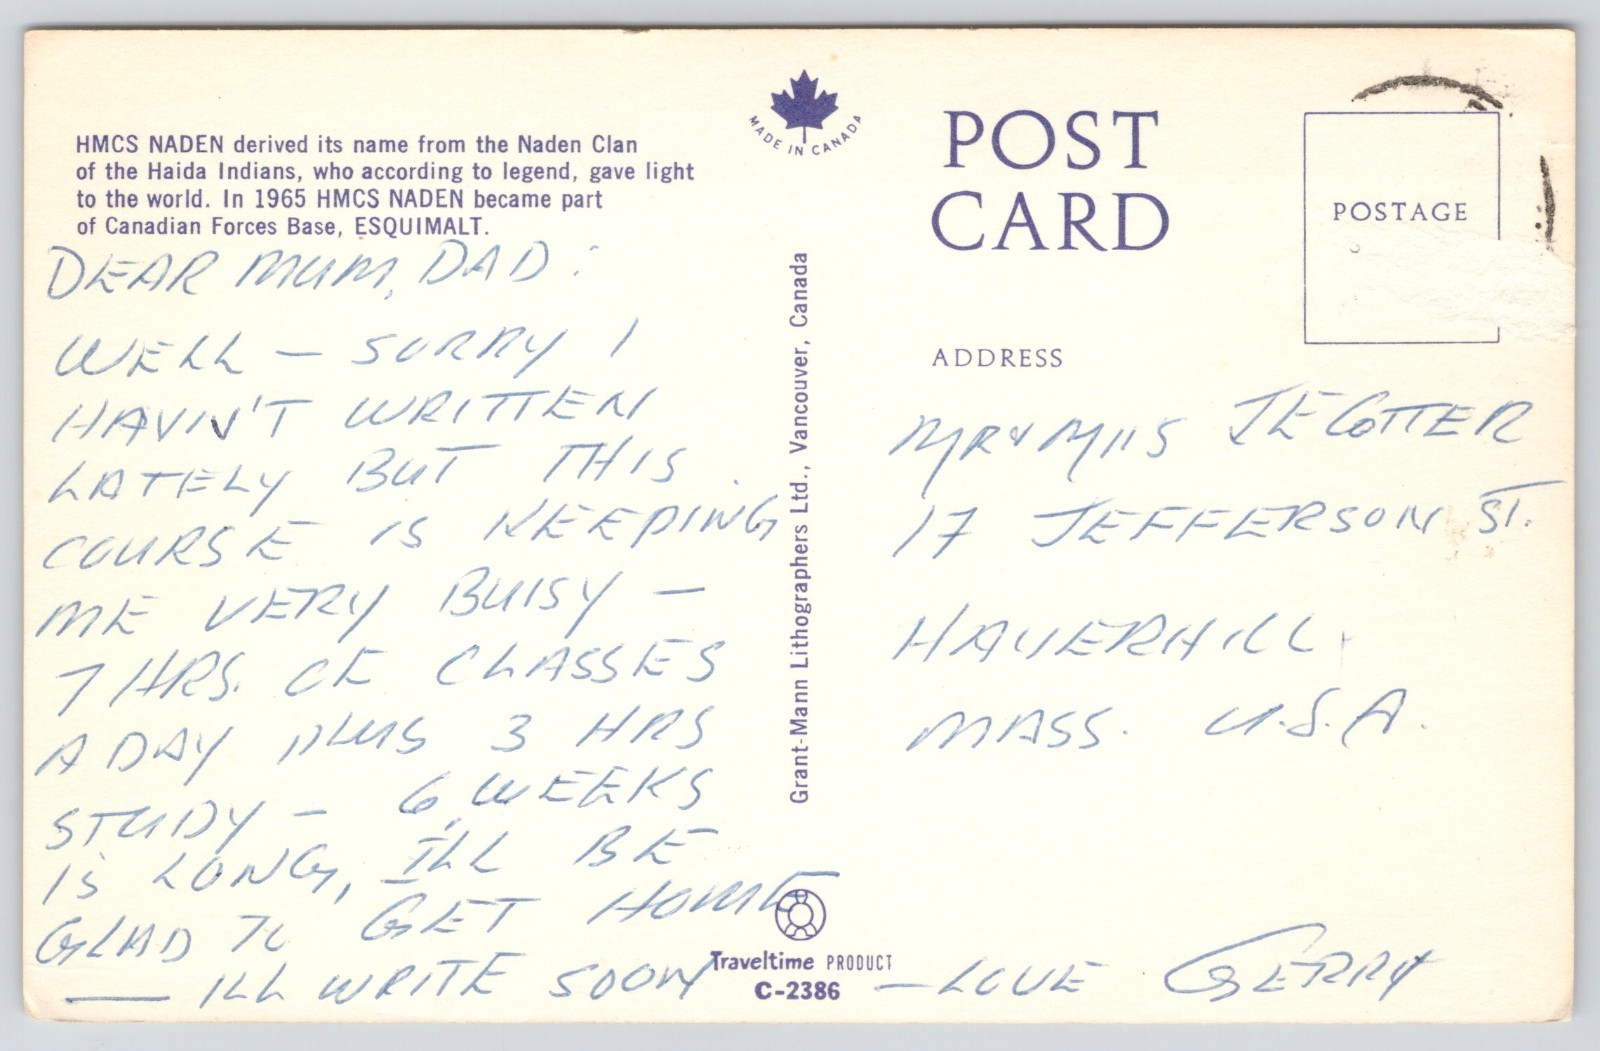 HMCS NADEN derived its name from the Naden Clan
of the Haida Indians, who according to legend, gave light
to the world. In 1965 HMCS NADEN became part
of Canadian Forces Base, ESQUIMALT.
DEAR MUM, DAD :
WELL — SORRY I
HAVIN'T WRITTEN
LATELY BUT THIS
COURSE IS KEEPING
ME VERY BUISY —
7 HRS. OF CLASSES
A DAY PLUS 3 HRS
STUDY — 6 WEEKS
IS LONG, I'LL BE
GLAD TO GET HOME
— I'LL WRITE SOON — LOVE GERRY
MADE IN CANADA
Grant-Mann Lithographers Ltd., Vancouver, Canada
Traveltime PRODUCT
C-2386
POST
CARD
POSTAGE
ADDRESS
MR & MRS J E COTTER
17 JEFFERSON ST.
HAVERHILL
MASS. U.S.A.